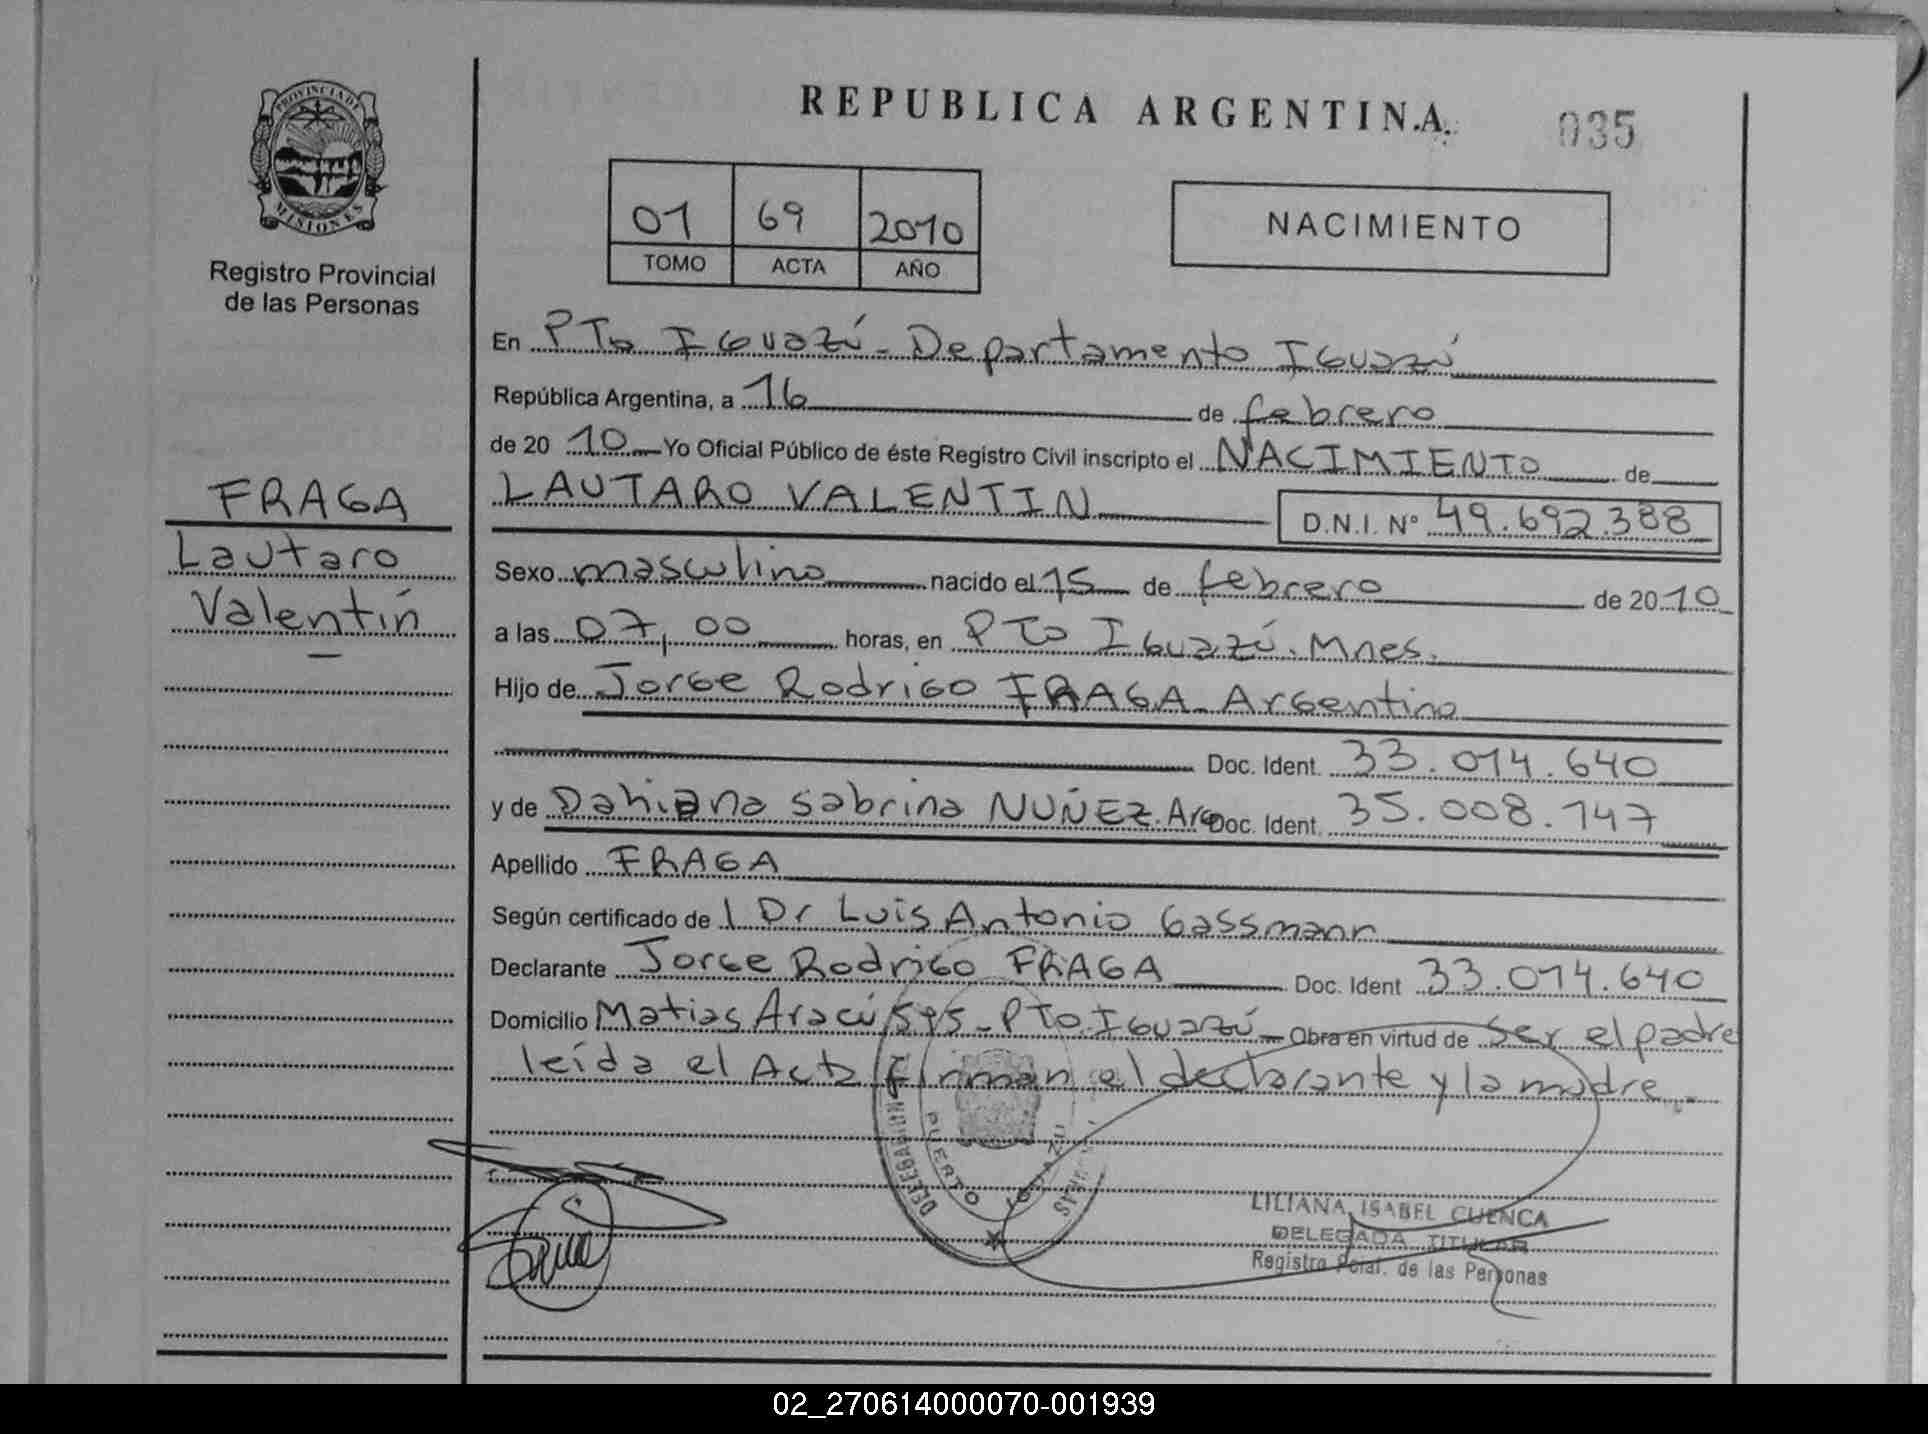 REPUBLICA ARGENTINA.
035
PROVINCIA DE
MISIONES
Registro Provincial
de las Personas
01 69 2010
TOMO ACTA AÑO
NACIMIENTO
En PTo IGuazú - Departamento IGuazú
República Argentina, a 16 de febrero
de 20 10 Yo Oficial Público de éste Registro Civil inscripto el NACIMIENTO de
LAUTARO VALENTIN D.N.I. N° 49.692.388
FRAGA
Lautaro
Valentín
Sexo masculino nacido el 15 de febrero de 20 10
a las 07,00 horas, en PTo IGuazú. Mnes.
Hijo de Jorge Rodrigo FRAGA - Argentino
Doc. Ident. 33.014.640
y de Dahiana Sabrina NUÑEZ. Arg Doc. Ident. 35.008.147
Apellido FRAGA
Según certificado de l Dr Luis Antonio Gassmann
Declarante Jorge Rodrigo FRAGA Doc. Ident 33.014.640
Domicilio Matias Aracú - PTo IGuazú - Obra en virtud de ser el padre
leída el Acta firman el declarante y la madre.-
PUERTO IGUAZU
LILIANA ISABEL CUENCA
DELEGADA TITULAR
Registro Pcial. de las Personas
02_270614000070-001939